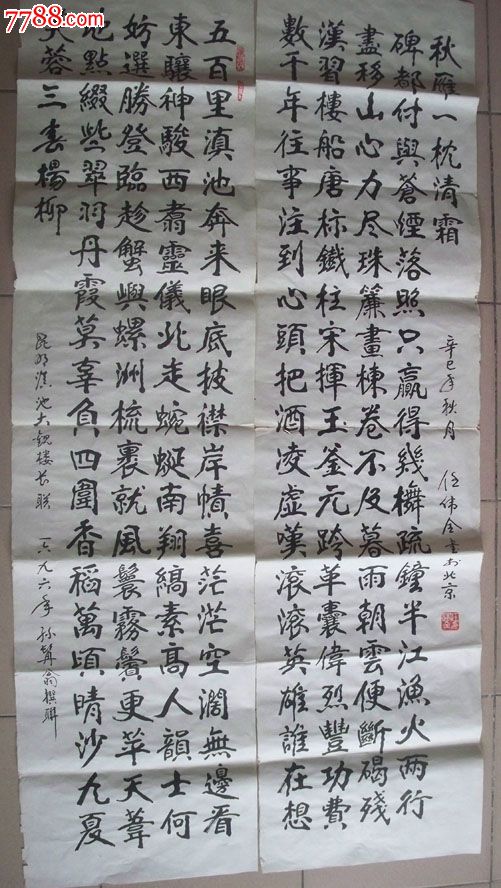 7788.com
五百里滇池奔來眼底披襟岸幘喜茫茫空闊無邊看
東驤神駿西翥靈儀北走蜿蜒南翔縞素高人韻士何
妨選勝登臨趁蟹嶼螺洲梳裹就風鬟霧鬢更苹天葦
地點綴些翠羽丹霞莫辜負四圍香稻萬頃晴沙九夏
芙蓉三春楊柳
昆明滇池大觀楼长联 一六九六年 孙髯翁撰聯
數千年往事注到心頭把酒凌虛嘆滾滾英雄誰在想
漢習樓船唐标鐵柱宋揮玉釜元跨革囊偉烈豐功費
盡移山心力尽珠簾畫棟卷不及暮雨朝雲便斷碣殘
碑都付與蒼煙落照只贏得幾疏鐘半江漁火兩行
秋雁一枕清霜
辛巳年秋月 任伟全書於北京